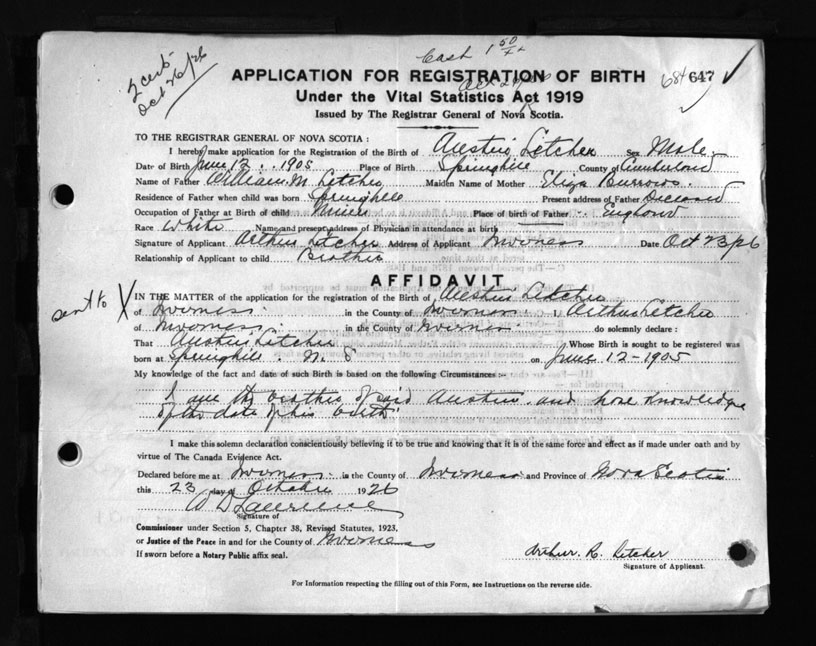 Cash 1 50/xx
2 cert
Oct 26/26
APPLICATION FOR REGISTRATION OF BIRTH
684 647
Under the Vital Statistics Act 1919
Issued by The Registrar General of Nova Scotia.
TO THE REGISTRAR GENERAL OF NOVA SCOTIA :
I hereby make application for the Registration of the Birth of Austin Letcher Sex Male
Date of Birth June 12 . 1905 Place of Birth Springhill County of Cumberland
Name of Father William M Letcher Maiden Name of Mother Eliza Burrows.
Residence of Father when child was born Springhill Present address of Father Deceased
Occupation of Father at Birth of child Miner Place of birth of Father England
Race White Name and present address of Physician in attendance at birth
Signature of Applicant Arthur Letcher Address of Applicant Inverness Date Oct 23/26
Relationship of Applicant to child Brother
AFFIDAVIT
sent to X
IN THE MATTER of the application for the registration of the Birth of Austin Letcher
of Inverness in the County of Inverness I, Arthur Letcher
of Inverness in the County of Inverness do solemnly declare :
That Austin Letcher Whose Birth is sought to be registered was
born at Springhill . N. S on June 12 - 1905
My knowledge of the fact and date of such Birth is based on the following Circumstances :-
I am the brother of said Austin and have knowledge
of the date of his birth
I make this solemn declaration conscientiously believing it to be true and knowing that it is of the same force and effect as if made under oath and by
virtue of The Canada Evidence Act.
Declared before me at Inverness in the County of Inverness and Province of Nova Scotia
this 23 day of October 1926
W D Lawrence
Signature of
Commissioner under Section 5, Chapter 38, Revised Statutes, 1923,
or Justice of the Peace in and for the County of Inverness
If sworn before a Notary Public affix seal.
Arthur. R. Letcher
Signature of Applicant.
For Information respecting the filling out of this Form, see Instructions on the reverse side.